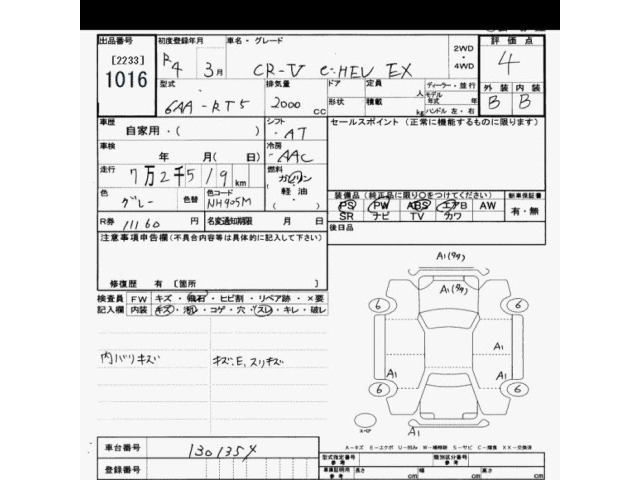 出品番号 初度登録年月 車名・グレード 評価点
[2233] R4 3月 CR-V e:HEV EX 2WD・4WD 4
1016 型式 排気量 ドア 定員 人 ディーラー・並行 外装 内装
6AA-RT5 2000 cc 形状 積載 kg モデル年式 年 ハンドル 左・右 B B
車歴 シフト セールスポイント (正常に機能するものに限ります)
自家用・( ) ・AT
車検 冷房
年 月(日) ・AAC
走行 7万2千519km 燃料
ガソリン
軽油
色 色替 色コード
グレー NH905M 装備品(純正品に限り○をつけてください) 新車保証書
R券 11160 名変通知期限 月 日 PS PW ABS エアB AW 有・無
SR ナビ TV カワ
注意事項申告欄(不具合内容等は具体的に記入して下さい) 後日品
修復歴 有 [箇所 ]
検査員 FW キズ・飛石・ヒビ割・リペア跡・×要
記入欄 内装 キズ・汚レ・コゲ・穴・スレ・キレ・破レ
内バリキズ キズ、E、スリキズ
A1(タガ)
A1(タガ)
6 6
A1
A1 A1
6 6
スペア A1
A-キズ E-エクボ U-凹み W-補修跡 S-サビ C-腐食 XX-交換済
車台番号 1301354 型式指定番号 参考 類別区分番号 参考
登録番号 車庫証明用 参考 長さ cm 幅 cm 高さ cm